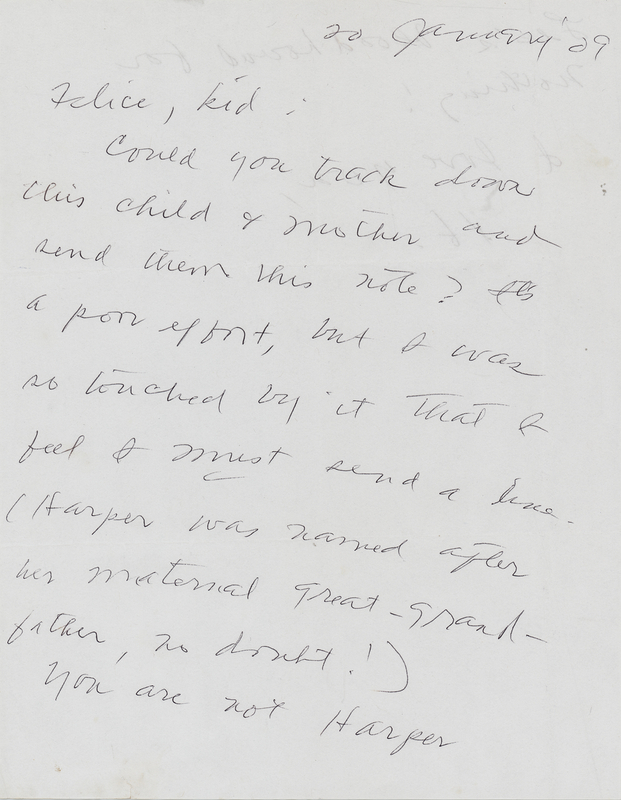 20 January '09
Felice, kid:
Could you track down
this child & mother and
send them this note? It's
a poor effort, but I was
so touched by it that I
feel I must send a line.
(Harper was named after
her maternal great-grand-
father, no doubt!)
You are not Harper